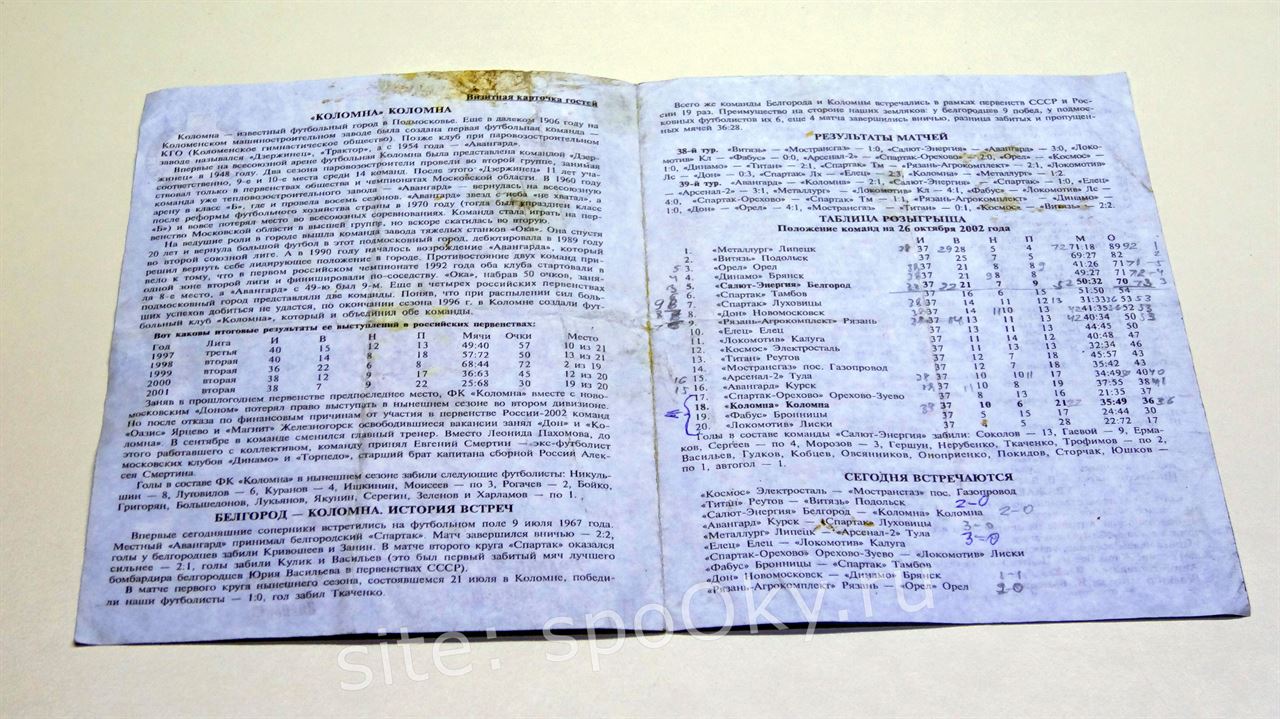 Визитная карточка гостей
«КОЛОМНА» КОЛОМНА
Коломна — известный футбольный город в Подмосковье. Еще в далеком 1906 году на
Коломенском машиностроительном заводе была создана первая футбольная команда —
КГО (Коломенское гимнастическое общество). Позже клуб при паровозостроительном
заводе назывался «Дзержинец», «Трактор», а с 1954 года — «Авангард».
Впервые на всесоюзной арене футбольная Коломна была представлена командой «Дзер-
жинец» в 1948 году. Два сезона паровозостроители провели во второй группе, занимая
соответственно, 9-е и 10-е места среди 14 команд. После этого «Дзержинец» 11 лет уча-
ствовал только в первенствах общества и чемпионатах Московской области. В 1960 году
команда уже тепловозостроительного завода — «Авангард» — вернулась на всесоюзную
арену в класс «Б», где и провела восемь сезонов. «Авангард» звезд с неба «не хватал», а
после реформы футбольного хозяйства страны в 1970 году (тогда был упразднен класс
«Б») и вовсе потерял место во всесоюзных соревнованиях. Команда стала играть на пер-
венство Московской области в высшей группе, но вскоре скатилась во вторую.
На ведущие роли в городе вышла команда завода тяжелых станков «Ока». Она спустя
20 лет и вернула большой футбол в этот подмосковный город, дебютировала в 1989 году
во второй союзной лиге. А в 1990 году началось возрождение «Авангарда», который
решил вернуть себе лидирующее положение в городе. Противостояние двух команд при-
вело к тому, что в первом российском чемпионате 1992 года оба клуба стартовали в
одной зоне второй лиги и финишировали по-соседству. «Ока», набрав 50 очков, заня-
ла 8-е место, а «Авангард» с 49-ю был 9-м. Еще в четырех российских первенствах
подмосковный город представляли две команды. Поняв, что при распылении сил боль-
ших успехов добиться не удастся, по окончании сезона 1996 г. в Коломне создали фут-
больный клуб «Коломна», который и объединил обе команды.
Вот каковы итоговые результаты ее выступлений в российских первенствах:
Год Лига И В Н П Мячи Очки Место
1997 третья 40 15 12 13 49:40 57 10 из 21
1998 вторая 40 14 8 18 57:72 50 13 из 21
1999 вторая 36 22 6 8 68:44 72 2 из 19
2000 вторая 38 12 9 17 36:63 45 12 из 20
2001 вторая 38 7 9 22 25:68 30 19 из 20
Заняв в прошлогоднем первенстве предпоследнее место, ФК «Коломна» вместе с ново-
московским «Доном» потерял право выступать в нынешнем сезоне во втором дивизионе.
Но после отказа по финансовым причинам от участия в первенстве России-2002 команд
«Оазис» Ярцево и «Магнит» Железногорск освободившиеся вакансии занял «Дон» и «Ко-
ломна». В сентябре в команде сменился главный тренер. Вместо Леонида Пахомова, до
этого работавшего с коллективом, команду принял Евгений Смертин — экс-футболист
московских клубов «Динамо» и «Торпедо», старший брат капитана сборной России Алек-
сея Смертина.
Голы в составе ФК «Коломна» в нынешнем сезоне забили следующие футболисты: Никуль-
шин — 8, Луговилов — 6, Куранов — 4, Ишкинин, Моисеев — по 3, Рогачев — 2, Бойко,
Григорян, Большедонов, Лукьянов, Якунин, Серегин, Зеленов и Харламов — по 1.
БЕЛГОРОД — КОЛОМНА. ИСТОРИЯ ВСТРЕЧ
Впервые сегодняшние соперники встретились на футбольном поле 9 июля 1967 года.
Местный «Авангард» принимал белгородский «Спартак». Матч завершился вничью — 2:2,
голы у белгородцев забили Кривошеев и Занин. В матче второго круга «Спартак» оказался
сильнее — 2:1, голы забили Кулик и Васильев (это был первый забитый мяч лучшего
бомбардира белгородцев Юрия Васильева в первенствах СССР).
В матче первого круга нынешнего сезона, состоявшемся 21 июля в Коломне, победи-
ли наши футболисты — 1:0, гол забил Ткаченко.
Всего же команды Белгорода и Коломны встречались в рамках первенств СССР и Рос-
сии 19 раз. Преимущество на стороне наших земляков: у белгородцев 9 побед, у подмос-
ковных футболистов их 6, еще 4 матча завершились вничью, разница забитых и пропущен-
ных мячей 36:28.
РЕЗУЛЬТАТЫ МАТЧЕЙ
38-й тур. «Витязь» — «Мострансгаз» — 1:0, «Салют-Энергия» — «Авангард» — 3:0, «Локо-
мотив» Кл — «Фабус» — 0:0, «Арсенал-2» — «Спартак-Орехово» — 2:0, «Орел» — «Космос» —
1:0, «Динамо» — «Титан» — 2:1, «Спартак» Тм — «Рязань-Агрокомплект» — 2:1, «Локомотив»
Лс — «Дон» — 0:3, «Спартак» Лх — «Елец» — 2:3, «Коломна» — «Металлург» — 1:2.
39-й тур. «Авангард» — «Коломна» — 2:1, «Салют-Энергия» — «Спартак» — 1:0, «Елец»
— «Арсенал-2» — 3:1, «Металлург» — «Локомотив» Кл — 4:1, «Фабус» — «Локомотив» Лс —
4:0, «Спартак-Орехово» — «Спартак» Тм — 1:1, «Рязань-Агрокомплект» — «Динамо» —
1:0, «Дон» — «Орел» — 4:1, «Мострансгаз» — «Титан» — 0:1, «Космос» — «Витязь» — 2:2.
ТАБЛИЦА РОЗЫГРЫША
Положение команд на 26 октября 2002 года
И В Н П М О
1. «Металлург» Липецк 38 37 29 28 5 4 72 71:18 89 92 1
2. «Витязь» Подольск 37 25 7 5 69:27 82 2
3. «Орел» Орел 37 21 8 8 41:26 71
4. «Динамо» Брянск 37 21 8 8 49:27 71
5. «Салют-Энергия» Белгород 37 22 21 7 9 52 50:32 70 73 3
6. «Спартак» Тамбов 37 16 6 15 51:50 54
7. «Спартак» Луховицы 37 14 11 12 13
8. «Дон» Новомосковск 37 14
9. «Рязань-Агрокомплект» Рязань 37 14 13 11 13
10. «Елец» Елец 37 13 11 13 44:45 50
11. «Локомотив» Калуга 37 11 14 12 40:48 47
12. «Космос» Электросталь 37 11 13 13 32:34 46
13. «Титан» Реутов 37 12 7 18 45:57 43
14. «Мострансгаз» пос. Газопровод 37 12 7 18 35:42 43
15. «Арсенал-2» Тула 37 10 10 11 17 34:49 40 40
16. «Авангард» Курск 37 11 10 8 19 37:55 38 41
17. «Спартак-Орехово» Орехово-Зуево 37 8 13 16 21:35 37
18. «Коломна» Коломна 37 10 6 21 22 35:49 36 36
19. «Фабус» Бронницы 37 5 15 17 24:44 30
20. «Локомотив» Лиски 37 4 5 28 22:72 17
Голы в составе команды «Салют-Энергия» забили: Соколов — 13, Гаевой — 9, Ерма-
ков, Сергеев — по 4, Морозов — 3, Гершун, Нерубенко, Ткаченко, Трофимов — по 2,
Васильев, Гудков, Кобцев, Овсянников, Оноприенко, Покидов, Сторчак, Юшков —
по 1, автогол — 1.
СЕГОДНЯ ВСТРЕЧАЮТСЯ
«Космос» Электросталь — «Мострансгаз» пос. Газопровод
«Титан» Реутов — «Витязь» Подольск 2-0
«Салют-Энергия» Белгород — «Коломна» Коломна 2-0
«Авангард» Курск — «Спартак» Луховицы 3-0
«Металлург» Липецк — «Арсенал-2» Тула 3-0
«Елец» Елец — «Локомотив» Калуга
«Спартак-Орехово» Орехово-Зуево — «Локомотив» Лиски
«Фабус» Бронницы — «Спартак» Тамбов
«Дон» Новомосковск — «Динамо» Брянск 1-1
«Рязань-Агрокомплект» Рязань — «Орел» Орел 2-0
site: spoOky.ru